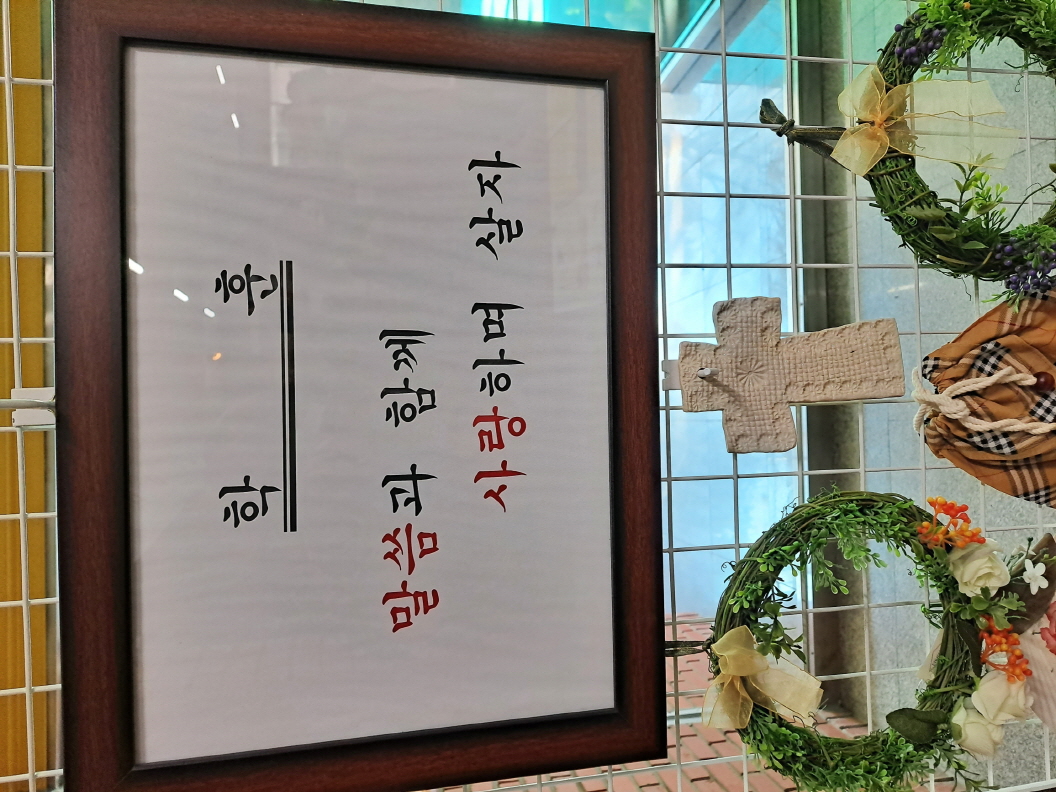 학 훈
말씀과 함께
사랑하며 살자